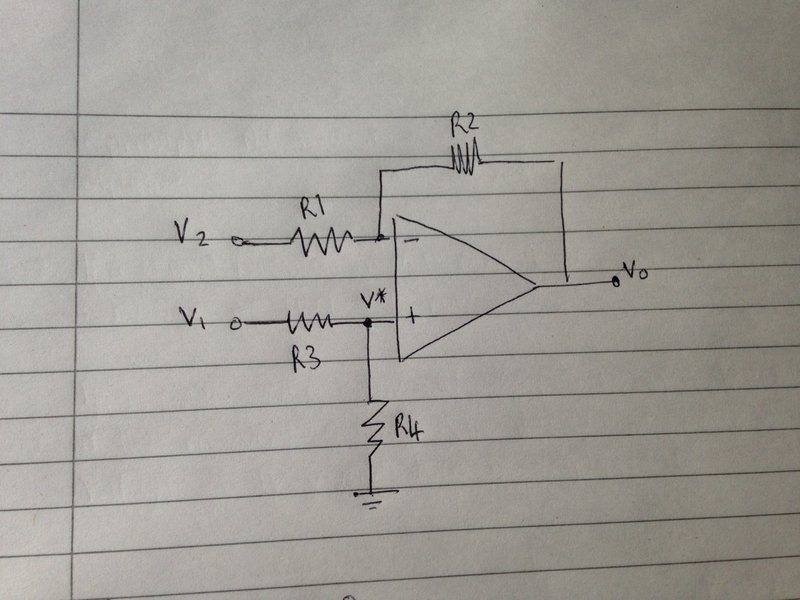 R2
R1
V2
−
V*
V1
+
V0
R3
R4